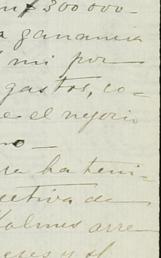 $300000-
a ganancia
mi por
gastos, co-
e el negocio
no-
ha teni-
ectiva de
Holmes arre
eses y el